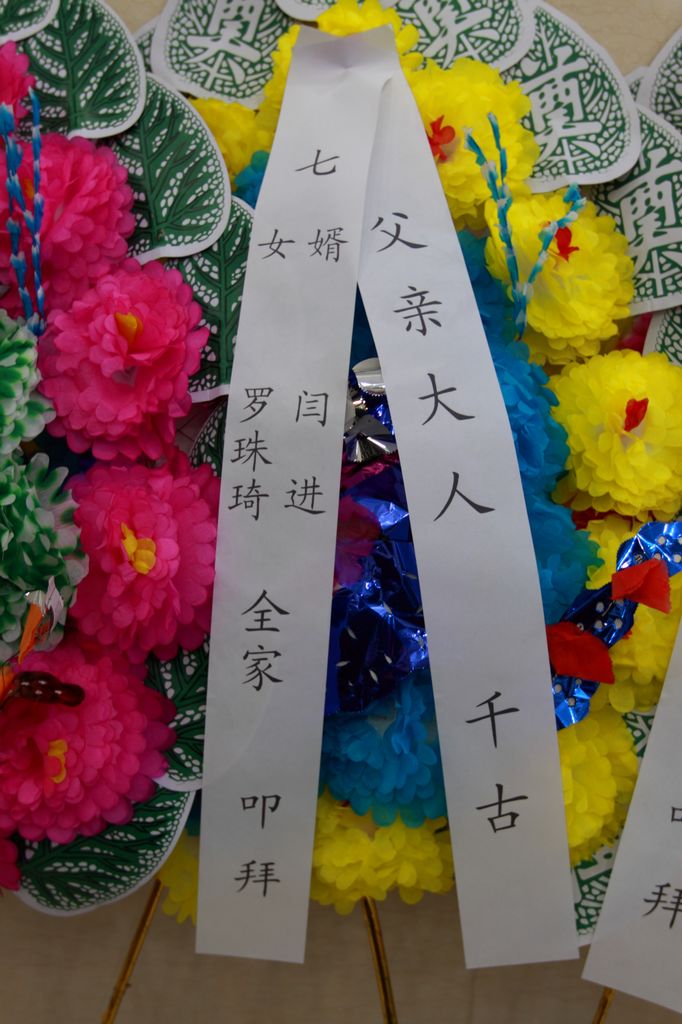 父亲大人 千古
七
女 婿
罗珠琦 闫进
全家
叩拜
奠
奠
奠
奠
叩拜